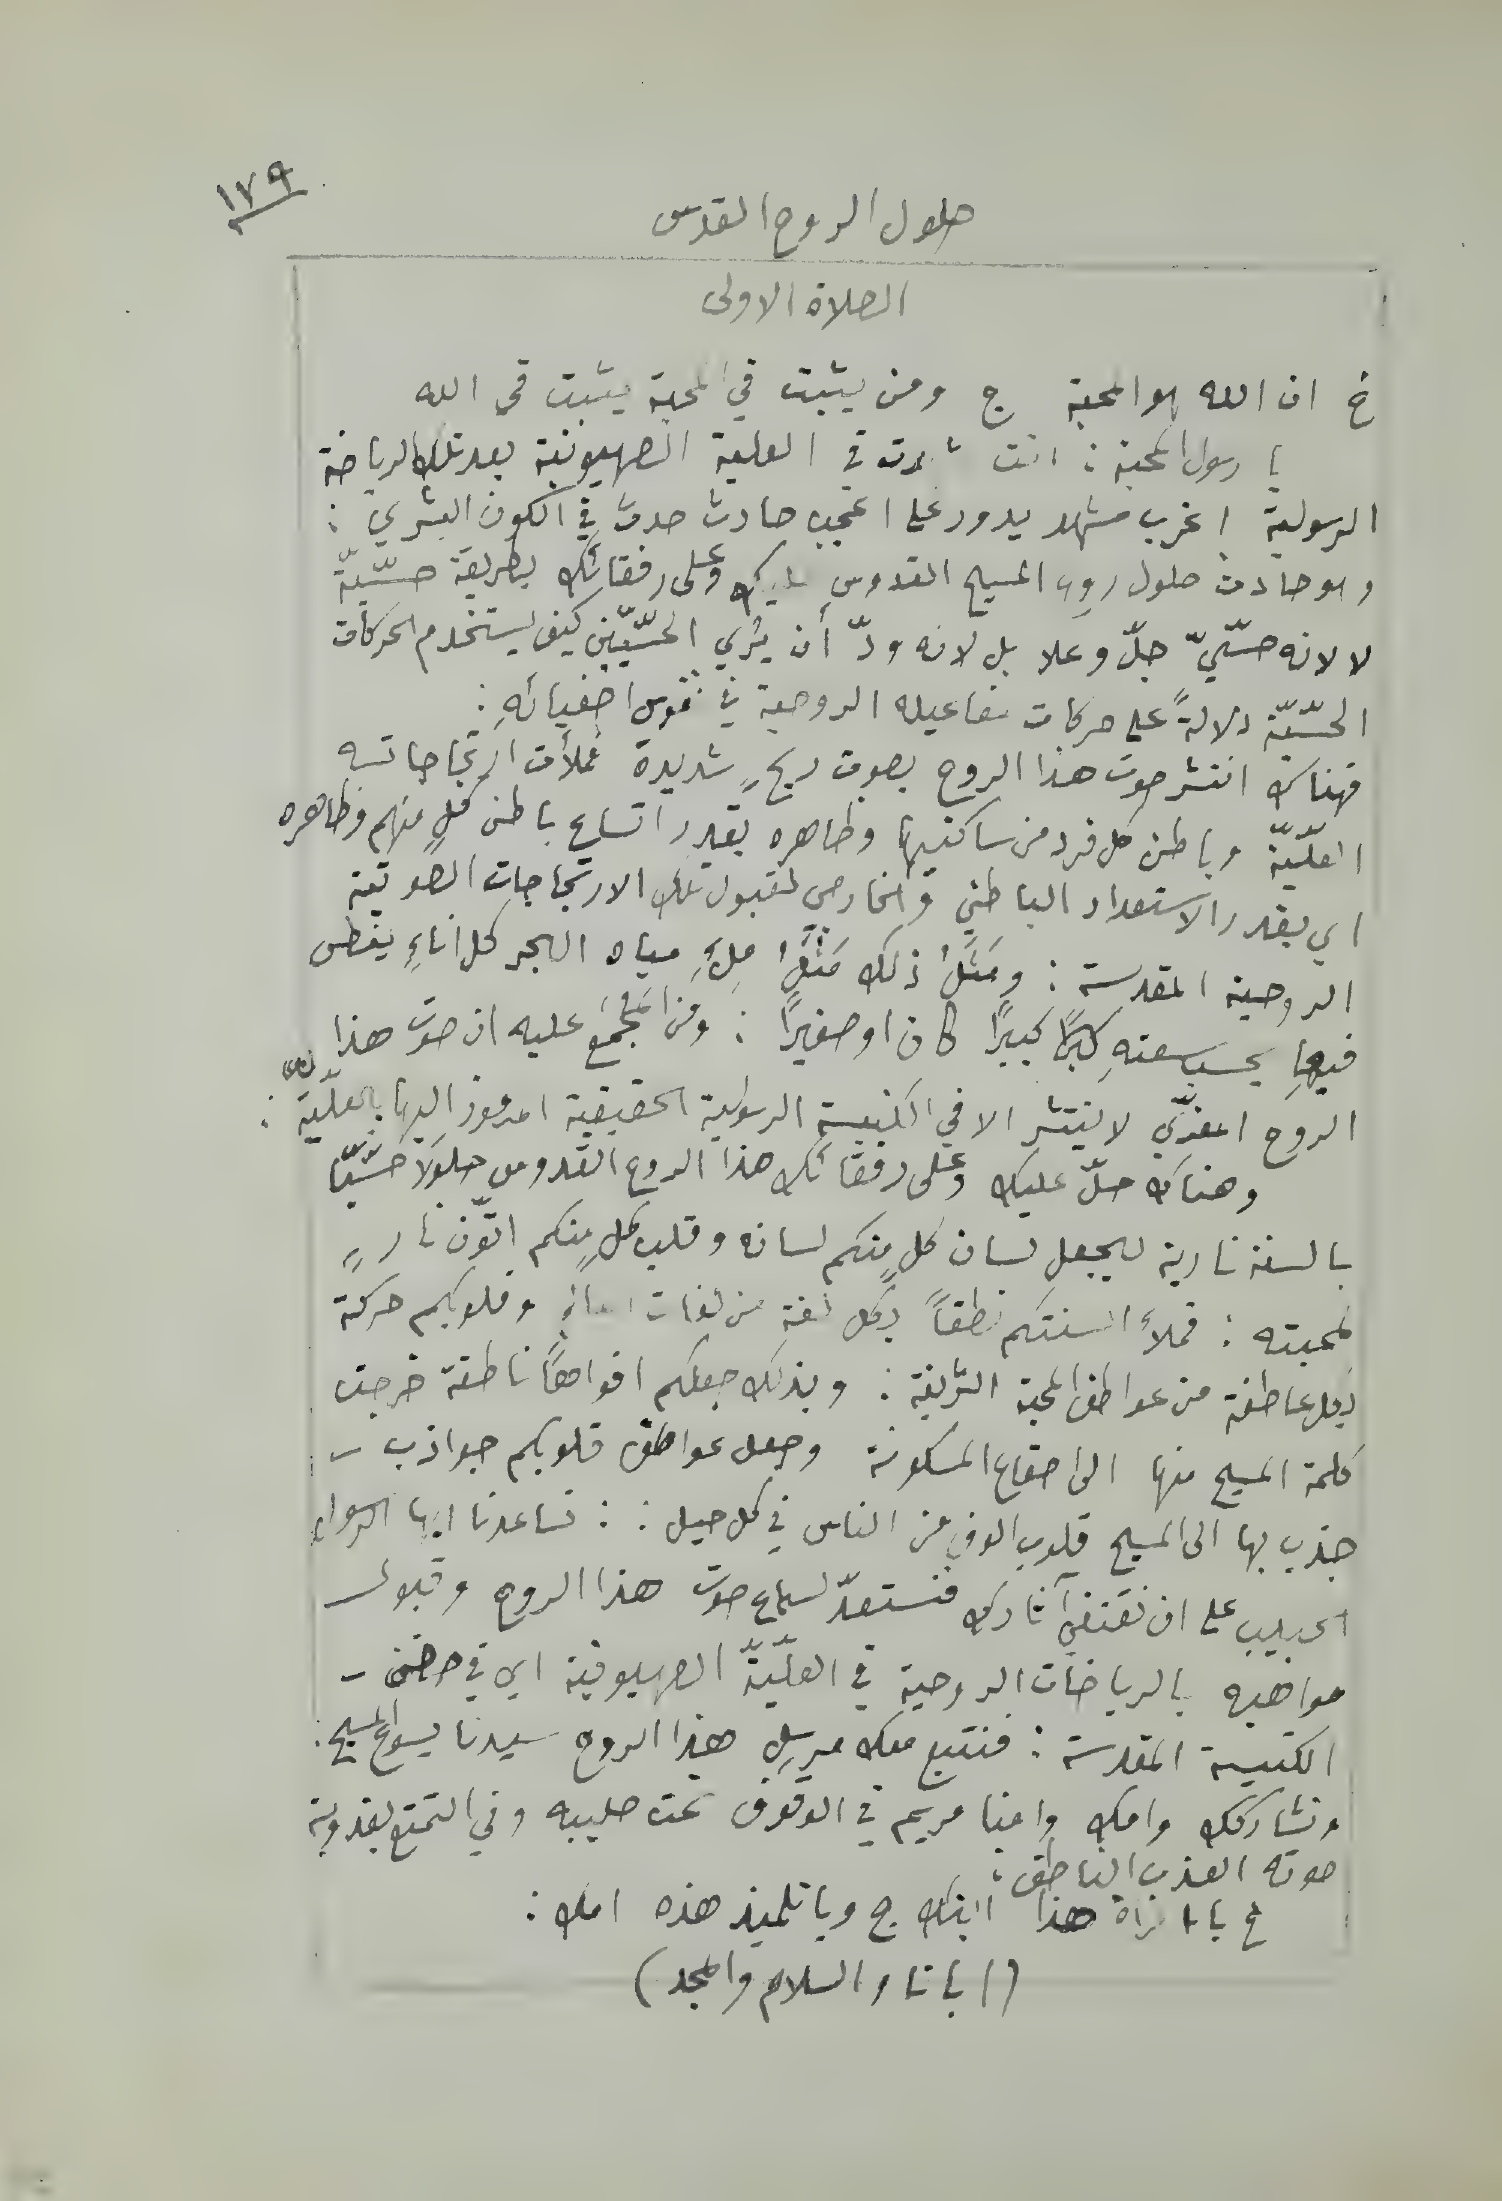 ١٧٩
حلول الروح القدس
الصلاة الاولى
خ ان الله هو المحبة ج ومن يثبت في المحبة يثبت في الله
يا رسول المحبة : انت شهدت في العلية الصهيونية بعد تلك الرياضة
الرسولية اغرب مشهد يدور على اعجب حادث حدث في الكون البشري :
وهو حادث حلول روح المسيح القدوس عليك وعلى رفقائك بطريقة حسّيّة
لا لانه حسّيّ جلّ وعلا بل لانه ودّ أن يُري الحسّيّين كيف يستخدم الحركات
الحسّيّة دلالةً على حركات مفاعيله الروحية في نفوس اصفيائهِ :
فهناك انتشر صوت هذا الروح بصوت ريحٍ شديدة فملأت ارتجاجاته
العلّيّة وباطن كل فرد من ساكنيها وظاهره بقدر اتساع باطن كلٍ منهم وظاهره
اي بقدر الاستعداد الباطني والخارجي لقبول تلك الارتجاجات الصوتية
الروحية المقدسة : ومَثَلُ ذلك مَثَلُ مِلءِ مياه البحر كل اناءٍ يغطس
فيها بحسب سعتهِ كبيرًا كان او صغيرًا : ومن المُجمَع عليه ان صوت هذا
الروح المعزّي لا ينتشر الا في الكنيسة الرسولية الحقيقية المرموز اليها بالعلّيّة :
وهناك حلّ عليك وعلى رفقائك هذا الروح القدوس حلولًا حسّيًّا
بالسنة نارية ليجعل لسان كلٍ منكم لسانه وقلب كلٍ منكم اتّون نارٍ
لمحبته : فملأ السنتكم نطقاً بكل لغة من لغات وقلوبكم حركة
بكل عاطفة من عواطف المحبة الشريفة : وبذلك جعلكم افواهًا ناطقة خرجت
كلمة المسيح منها الى اصقاع المسكونة وجعل عواطف قلوبكم جواذب –
جذب بها الى المسيح قلوب الوفٍ من الناس في كل جيل : : فساعدنا ايها الرسول
الحبيب على ان نقتفي آثارك فنستعدّ لسماع صوت هذا الروح وقبول
مواهبه بالرياضات الروحية في العلّيّة الصهيونية اي في حضن –
الكنيسة المقدسة : فنتبع معك مرسِل هذا الروح سيدنا يسوع المسيح :
ونشاركك وامك وامنا مريم في الوقوف تحت صليبه وفي التمتع بعذوبة
صوته العذب الناطق :
خ يا امرأة هذا ابنك ج ويا تلميذ هذه امك :
(ابانا والسلام والمجد)